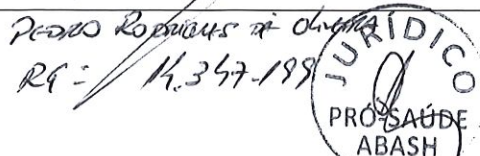 PEDRO RODRIGUES DE OLIVEIRA
RG = 14.347-199
JURÍDICO
PRÓ-SAÚDE
ABASH